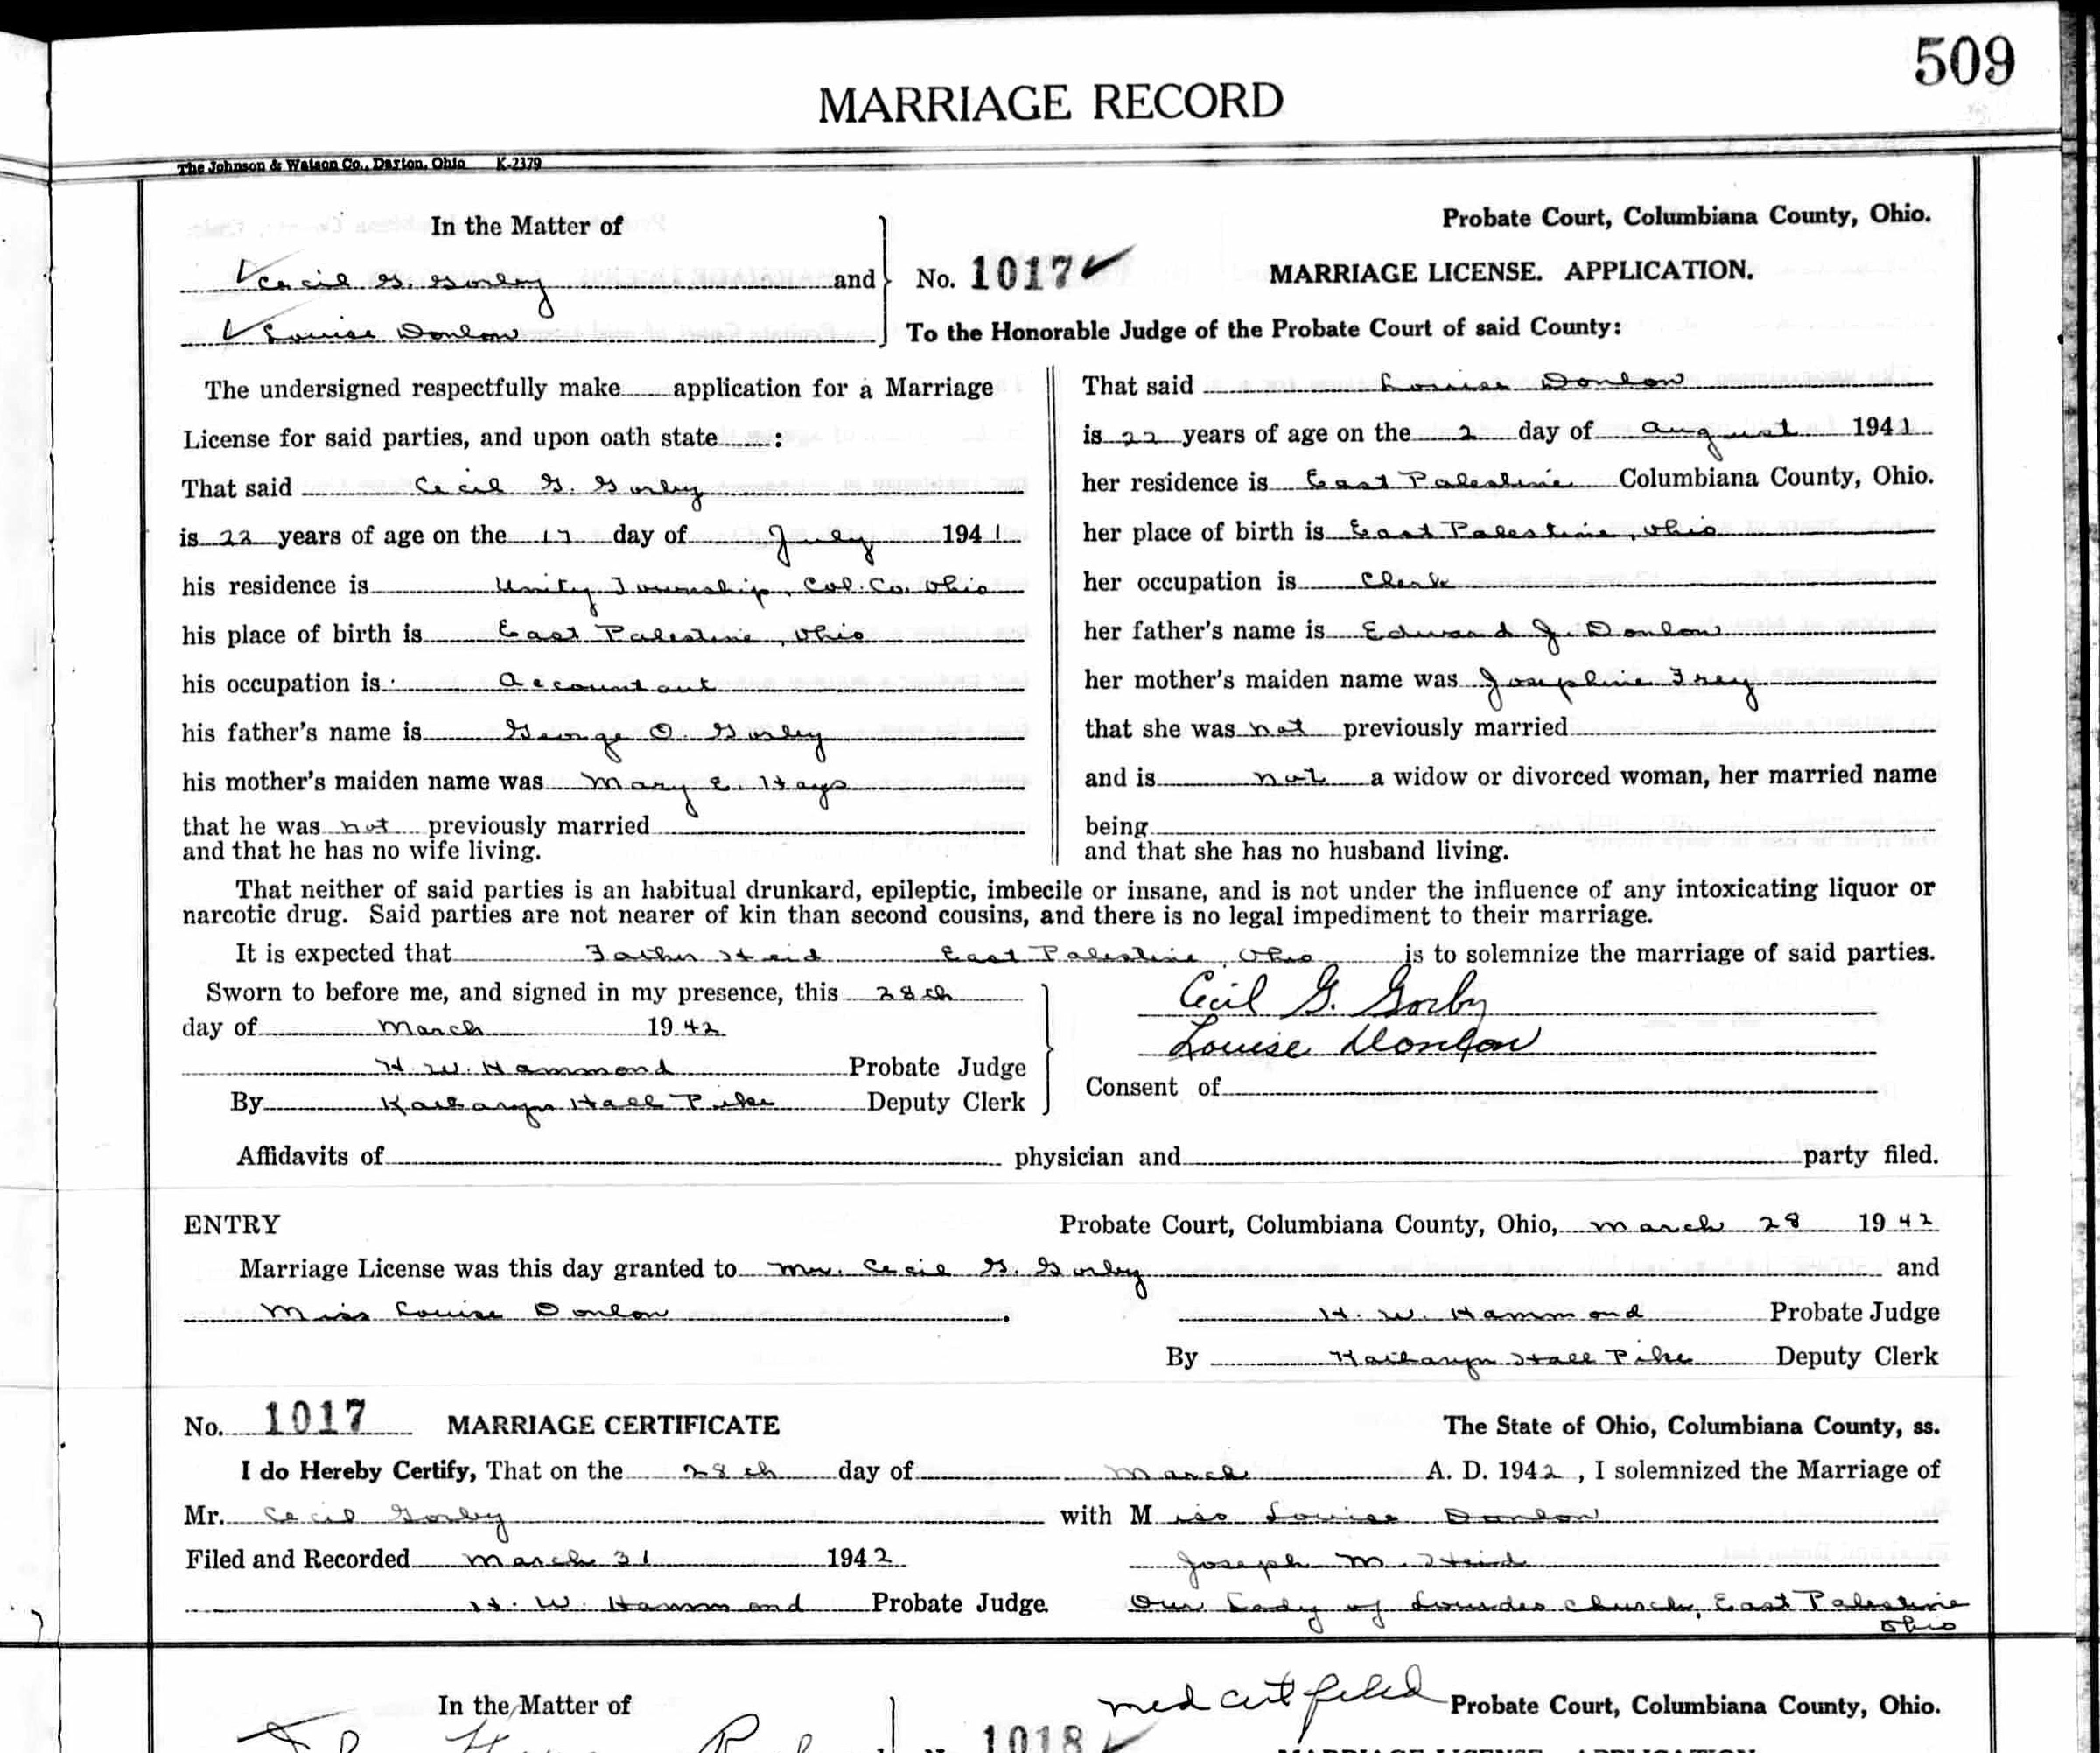 509
MARRIAGE RECORD
The Johnson & Watson Co., Dayton, Ohio K-2379
In the Matter of
Cecil G. Gorby and
Louise Donlon
No. 1017
Probate Court, Columbiana County, Ohio.
MARRIAGE LICENSE. APPLICATION.
To the Honorable Judge of the Probate Court of said County:
The undersigned respectfully make application for a Marriage
License for said parties, and upon oath state :
That said Cecil G. Gorby
is 22 years of age on the 17 day of July 1941
his residence is Unity Township, Col. Co. Ohio
his place of birth is East Palestine, Ohio
his occupation is Accountant
his father's name is George O. Gorby
his mother's maiden name was Mary E. Hays
that he was not previously married
and that he has no wife living.
That said Louise Donlon
is 22 years of age on the 2 day of August 1941
her residence is East Palestine Columbiana County, Ohio.
her place of birth is East Palestine, Ohio
her occupation is Clerk
her father's name is Edward J. Donlon
her mother's maiden name was Josephine Frey
that she was not previously married
and is not a widow or divorced woman, her married name
being
and that she has no husband living.
That neither of said parties is an habitual drunkard, epileptic, imbecile or insane, and is not under the influence of any intoxicating liquor or
narcotic drug. Said parties are not nearer of kin than second cousins, and there is no legal impediment to their marriage.
It is expected that Father Heid East Palestine, Ohio is to solemnize the marriage of said parties.
Sworn to before me, and signed in my presence, this 28th
day of March 1942
H. W. Hammond Probate Judge
By Katharyn Hall Pike Deputy Clerk
Cecil G. Gorby
Louise Donlon
Consent of
Affidavits of physician and party filed.
ENTRY Probate Court, Columbiana County, Ohio, March 28 1942
Marriage License was this day granted to Mr. Cecil G. Gorby and
Miss Louise Donlon.
H. W. Hammond Probate Judge
By Katharyn Hall Pike Deputy Clerk
No. 1017 MARRIAGE CERTIFICATE The State of Ohio, Columbiana County, ss.
I do Hereby Certify, That on the 28th day of March A. D. 1942, I solemnized the Marriage of
Mr. Cecil Gorby with Miss Louise Donlon
Filed and Recorded March 31 1942 Joseph M. Heid
H. W. Hammond Probate Judge. Our Lady of Lourdes Church, East Palestine
Ohio
med cert filed
In the Matter of Probate Court, Columbiana County, Ohio.
1018
MARRIAGE LICENSE. APPLICATION.